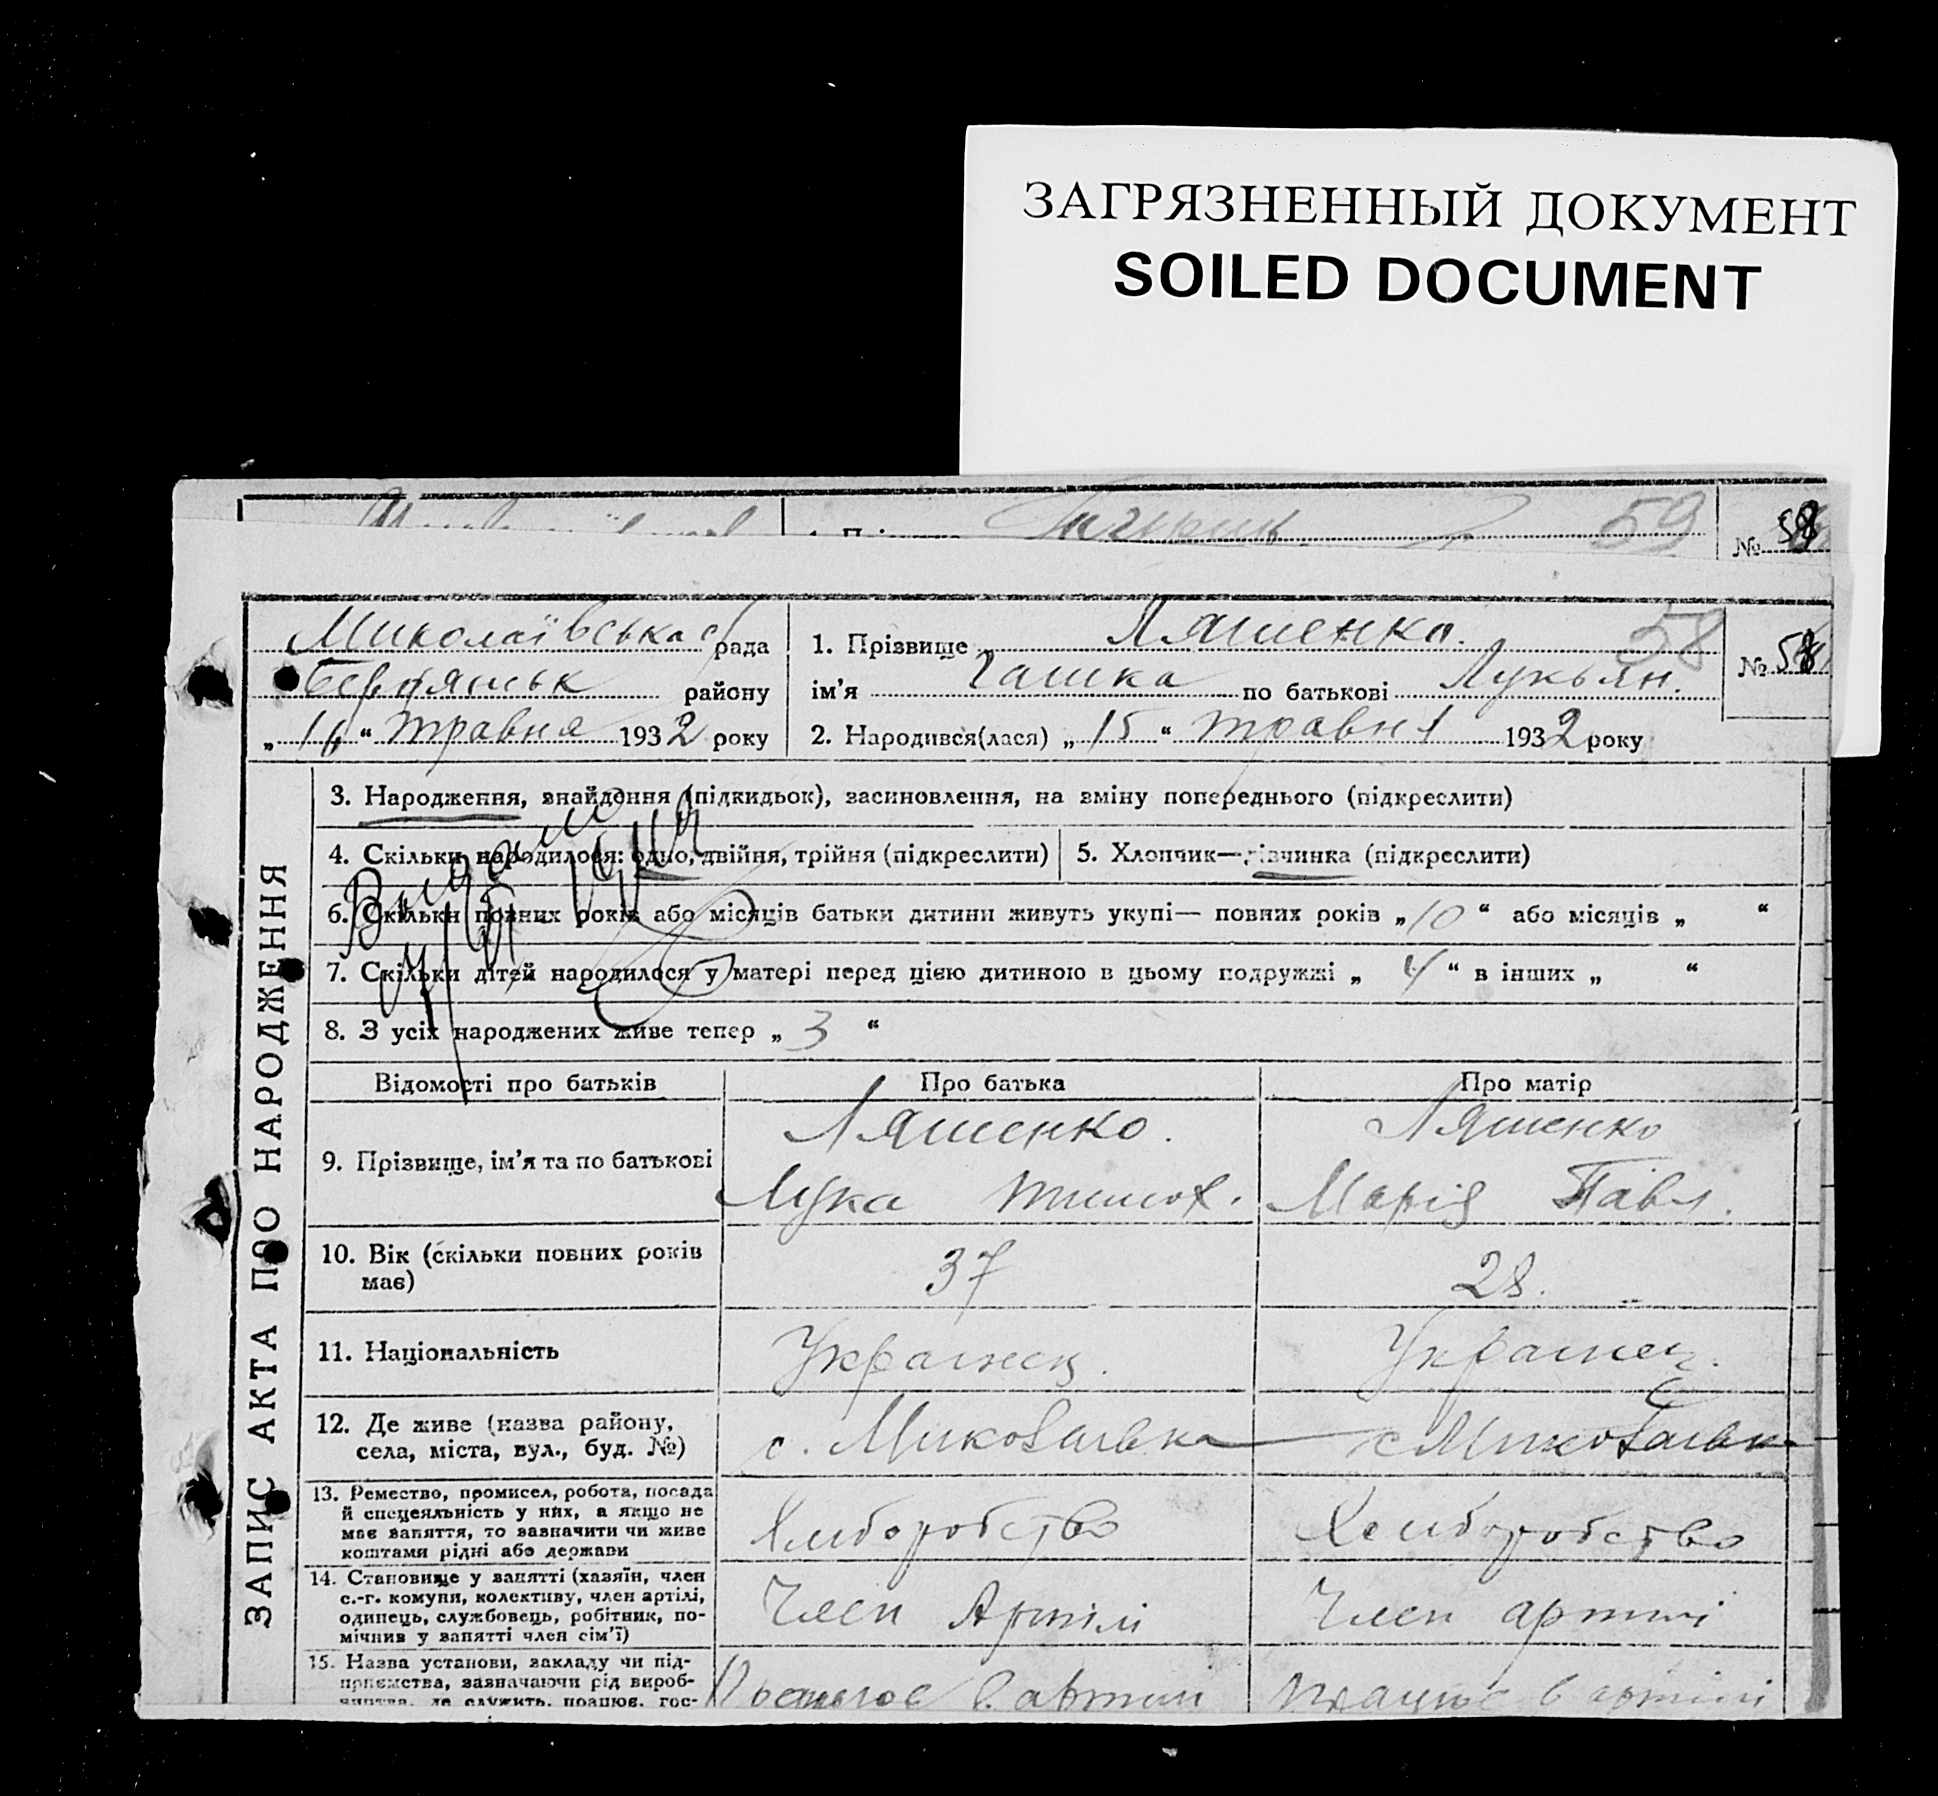 ЗАГРЯЗНЕННЫЙ ДОКУМЕНТ
SOILED DOCUMENT
59 № 58
Миколаївська с/рада 1. Прізвище „ Ляшенко. 58 № 58
Бердянськ району ім'я по батькові Лукьян.
„16“ травня 1932 року 2. Народився(лася) „15“ травня 1932 року
ЗАПИС АКТА ПРО НАРОДЖЕННЯ
3. Народження, знайдення (підкидьок), засиновлення, на зміну попереднього (підкреслити)
4. Скільки народилося: одно, двійня, трійня (підкреслити) 5. Хлопчик—дівчинка (підкреслити)
6. Скільки повних років або місяців батьки дитини живуть укупі— повних років „10“ або місяців „ “
7. Скільки дітей народилося у матері перед цією дитиною в цьому подружжі „4“ в інших „ “
8. З усіх народжених живе тепер „3“
Відомості про батьків Про батька Про матір
9. Прізвище, ім'я та по батькові Ляшенко. Ляшенко
Лука Тимоф. Марія Павл.
10. Вік (скільки повних років має) 37 28.
11. Національність Украинец. Украинец.
12. Де живе (назва району, села, міста, вул., буд. №) с. Миколаивка с Миколаивка
13. Ремество, промисел, робота, посада
й спецеяльність у них, а якщо не
має заняття, то зазначити чи живе
коштами рідні або держави
Хлиборобство Хлиборобство
14. Становище у занятті (хазяїн, член
с.-г. комуни, колективу, член артілі,
одинець, службовець, робітник, по-
мічник у занятті член сім'ї)
Член Артілі Член артилі
15. Назва установи, закладу чи під-
приємства, зазначаючи рід вироб-
ництва, де служить, працює, гос-
в артилі працює в артілі